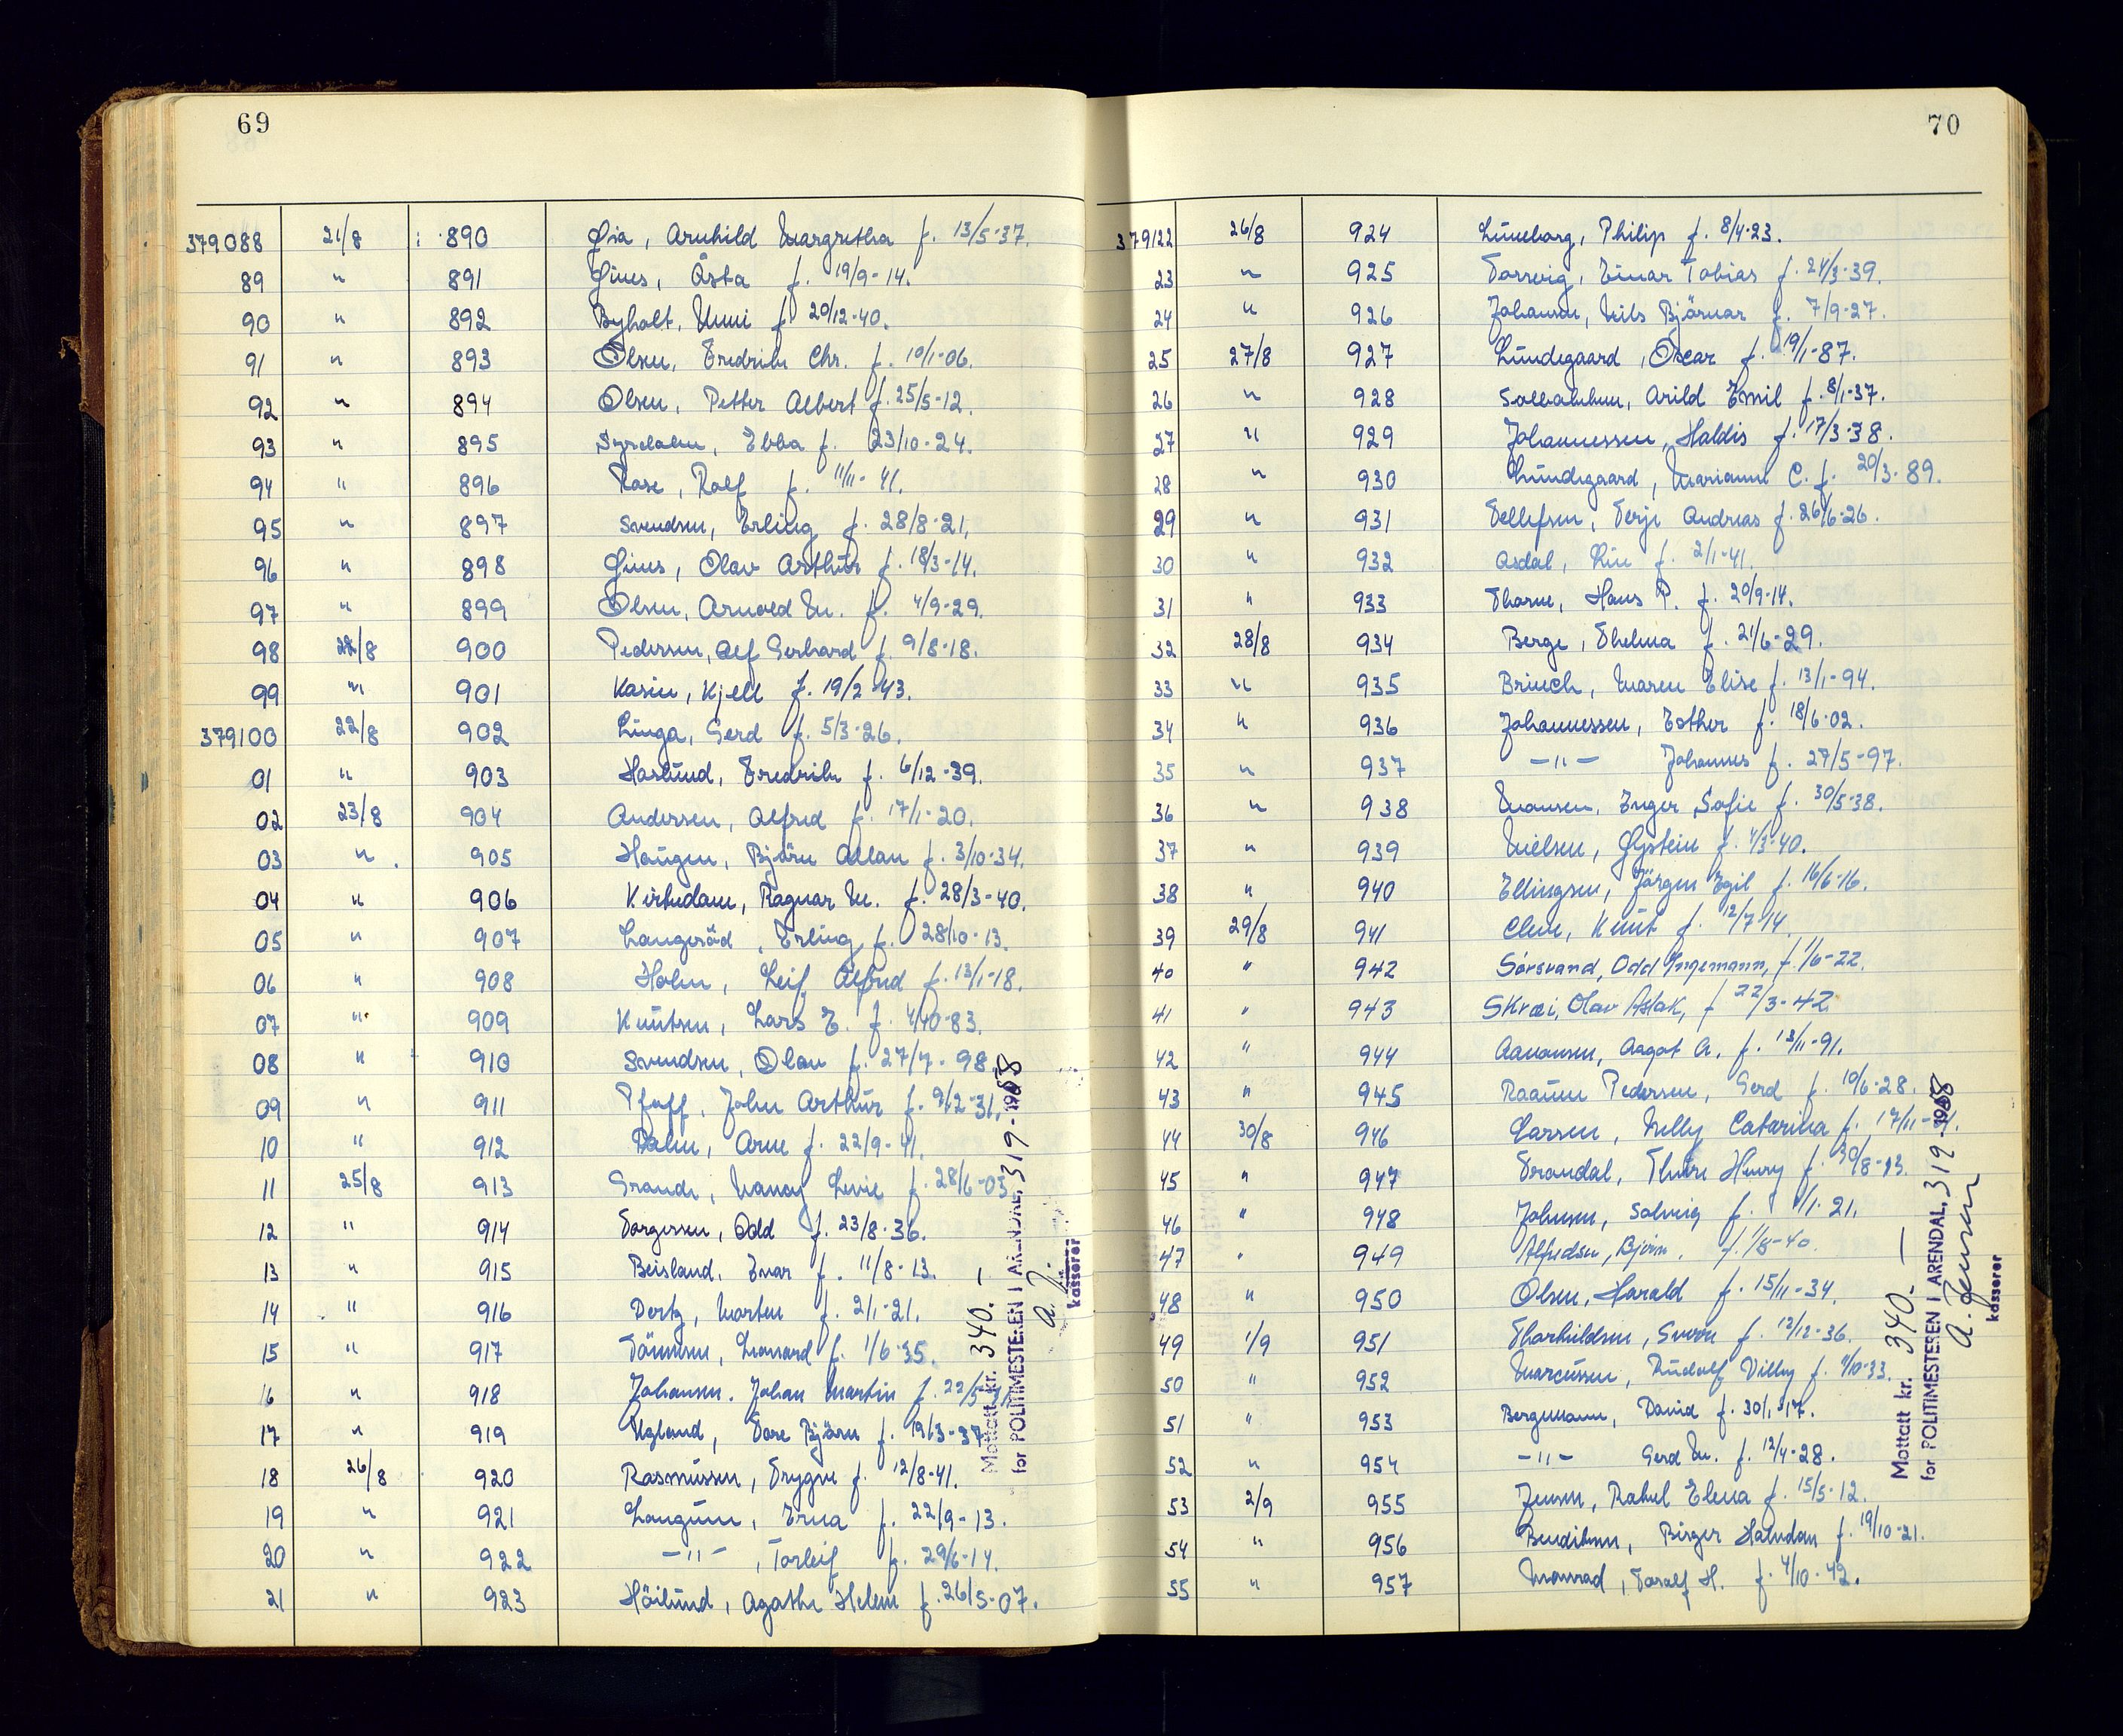 69
379088 21/8 890 Øia, Arnhild Margretha f. 13/5-37.
89 " 891 Gines, Åsta f. 19/9-14.
90 " 892 Byholt, Unni f. 20/12-40.
91 " 893 Olsen, Fredrik Chr. f. 10/1-06.
92 " 894 Olsen, Petter Albert f. 25/5-12.
93 " 895 Ebba f. 23/10-24.
94 " 896 Rase, Rolf f. 11/11-41.
95 " 897 Svendsen, Erling f. 28/8-21.
96 " 898 Gines, Olav Arthur f. 18/3-14.
97 " 899 Olsen, Arnold M. f. 4/9-29.
98 22/8 900 Pedersen, Alf Gerhard f. 9/8-18.
99 " 901 Kasin, Kjell f. 19/2-43.
379100 22/8 902 Linga, Gerd f. 5/3-26.
01 " 903 Haslund, Fredrik f. 6/12-39.
02 23/8 904 Andersen, Alfred f. 17/1-20.
03 " 905 Haugen, Bjørn Allan f. 3/10-34.
04 " 906 Kirkedam, Ragnar M. f. 28/3-40.
05 " 907 Langerød, Erling f. 28/10-13.
06 " 908 Holm, Leif Alfred f. 13/1-18.
07 " 909 Knutsen, Lars E. f. 4/10-83.
08 " 910 Svendsen, Olav f. 27/7-98.
09 " 911 Pfaff, John Arthur f. 9/2-31.
10 " 912 Palm, Arne f. 22/9-41.
11 25/8 913 Grande, Nancy Levie f. 28/6-03.
12 " 914 Torgersen, Odd f. 23/8-36.
13 " 915 Beisland, Ivar f. 11/8-13.
14 " 916 Dertz, Morten f. 2/1-21.
15 " 917 Tønnesen, Leonard f. 1/6-35.
16 " 918 Johansen. Johan Martin f. 22/5-
17 " 919 Ugland, Tore Bjørn f. 19/3-37.
18 26/8 920 Rasmussen, Trygve f. 12/8-41.
19 " 921 Langum, Erna f. 22/9-13.
20 " 922 -"- , Torleif f. 29/6-14.
21 " 923 Høilund, Agathe Helene f. 26/5-07.
Mottatt kr. 340.-
for POLITIMESTEREN I ARENDAL, 3/9-1958
A. J.
kasserer
70
379122 26/8 924 Luneborg, Philip f. 8/4-23.
23 " 925 Torsvig, Einar Tobias f. 24/3-39.
24 " 926 Johansen, Nils Bjørnar f. 7/9-27.
25 27/8 927 Lundegaard, Oscar f. 19/1-87.
26 " 928 Solbakken, Arild Emil f. 8/1-37.
27 " 929 Johannessen, Haldis f. 17/3-38.
28 " 930 Lundegaard, Marianne C. f. 20/3-89.
29 " 931 Tellefsen, Terje Andreas f. 26/6-26.
30 " 932 Asdal, Line f. 2/1-41.
31 " 933 Tharne, Hans P. f. 20/9-14.
32 28/8 934 Berge, Thelma f. 21/6-29.
33 " 935 Brinch, Maren Elise f. 13/1-94.
34 " 936 Johannessen, Esther f. 18/6-02.
35 " 937 -"- Johannes f. 27/5-97.
36 " 938 Inger Sofie f. 30/5-38.
37 " 939 Nielsen, Øystein f. 4/3-40.
38 " 940 Ellingsen, Jørgen Egil f. 16/6-16.
39 29/8 941 Cleve, Knut f. 12/7-14.
40 " 942 Sørsvand, Odd Ingemann, f. 1/6-22.
41 " 943 Skræi, Olav Aslak, f 22/3-42.
42 " 944 Aanonsen, Aagot A. f. 13/11-91.
43 " 945 Raaum Pedersen, Gerd f. 10/6-28.
44 30/8 946 Larsen, Nelly Catarina f. 17/11-
45 " 947 Trondal, Thure Henry f. 30/8-13.
46 " 948 Johnsen, Solveig f. 1/1-21.
47 " 949 Alfredsen, Bjørn. f. 1/8-40.
48 " 950 Olsen, Harald f. 15/11-34.
49 1/9 951 Thorkildsen, Sverre f. 12/12-36.
50 " 952 Marcussen, Rudolf Villy f. 9/10-33.
51 " 953 Bergmann, David f. 30/1-17.
52 " 954 -"- Gerd M. f. 12/4-28.
53 2/9 955 Jensen, Rakel Elena f. 15/5-12.
54 " 956 Bendiksen, Birger Halvdan f. 19/10-21.
55 " 957 Monrad, Toralf H. f. 4/10-42.
Mottatt kr. 340.-
for POLITIMESTEREN I ARENDAL, 3/9-1958
A. Jensen
kasserer